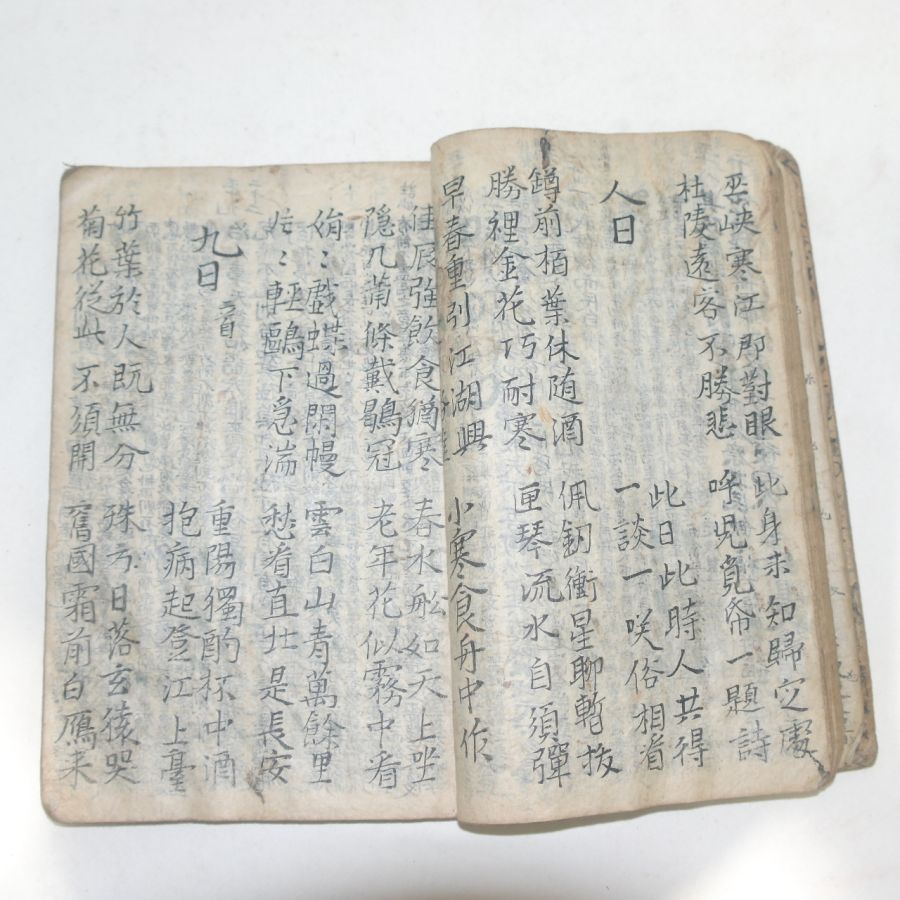 巫峡寒江那對眼 此身未知歸定處
杜陵遠客不勝悲 呼兒覓帋一題詩
人日 此日此時人共得
一談一咲俗相看
鐏前栢葉休随酒 佩釰衝星聊暫拔
勝裡金花巧耐寒 匣琴流水自須彈
早春重引江湖興 小寒食舟中作
佳辰強飲食猶寒 春水舩如天上坐
隱几蕭條戴鶡冠 老年花似霧中看
娟〻戲蝶過閑幔 雲白山青萬餘里
片〻輕鷗下急湍 愁看直北是長安
九日 二首 重陽獨酌杯中酒
抱病起登江上臺
竹葉於人既無分 殊方日落玄猿哭
菊花從此不須開 舊國霜前白鴈来